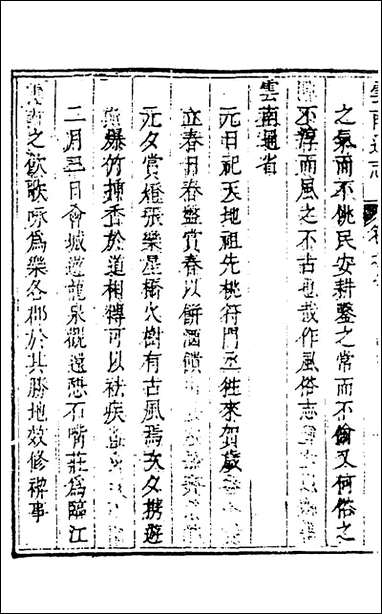 雲南通志
之氣而不佻民安耕鑿之常而不偷又何俗之
不淳而風之不古也哉作風俗志
雲南通省
元日祀天地祖先桃符門丞牲來賀歲
立春日春盤賞春以餅酒饋
元夕賞燈張樂星橋火樹有古風焉次夕携遊
爆竹揷香於道相傳可以祛疾
二月三日會城遊龍泉觀還憩石嘴莊為臨江
之飲歌咏為樂各郡於其勝地效修禊事